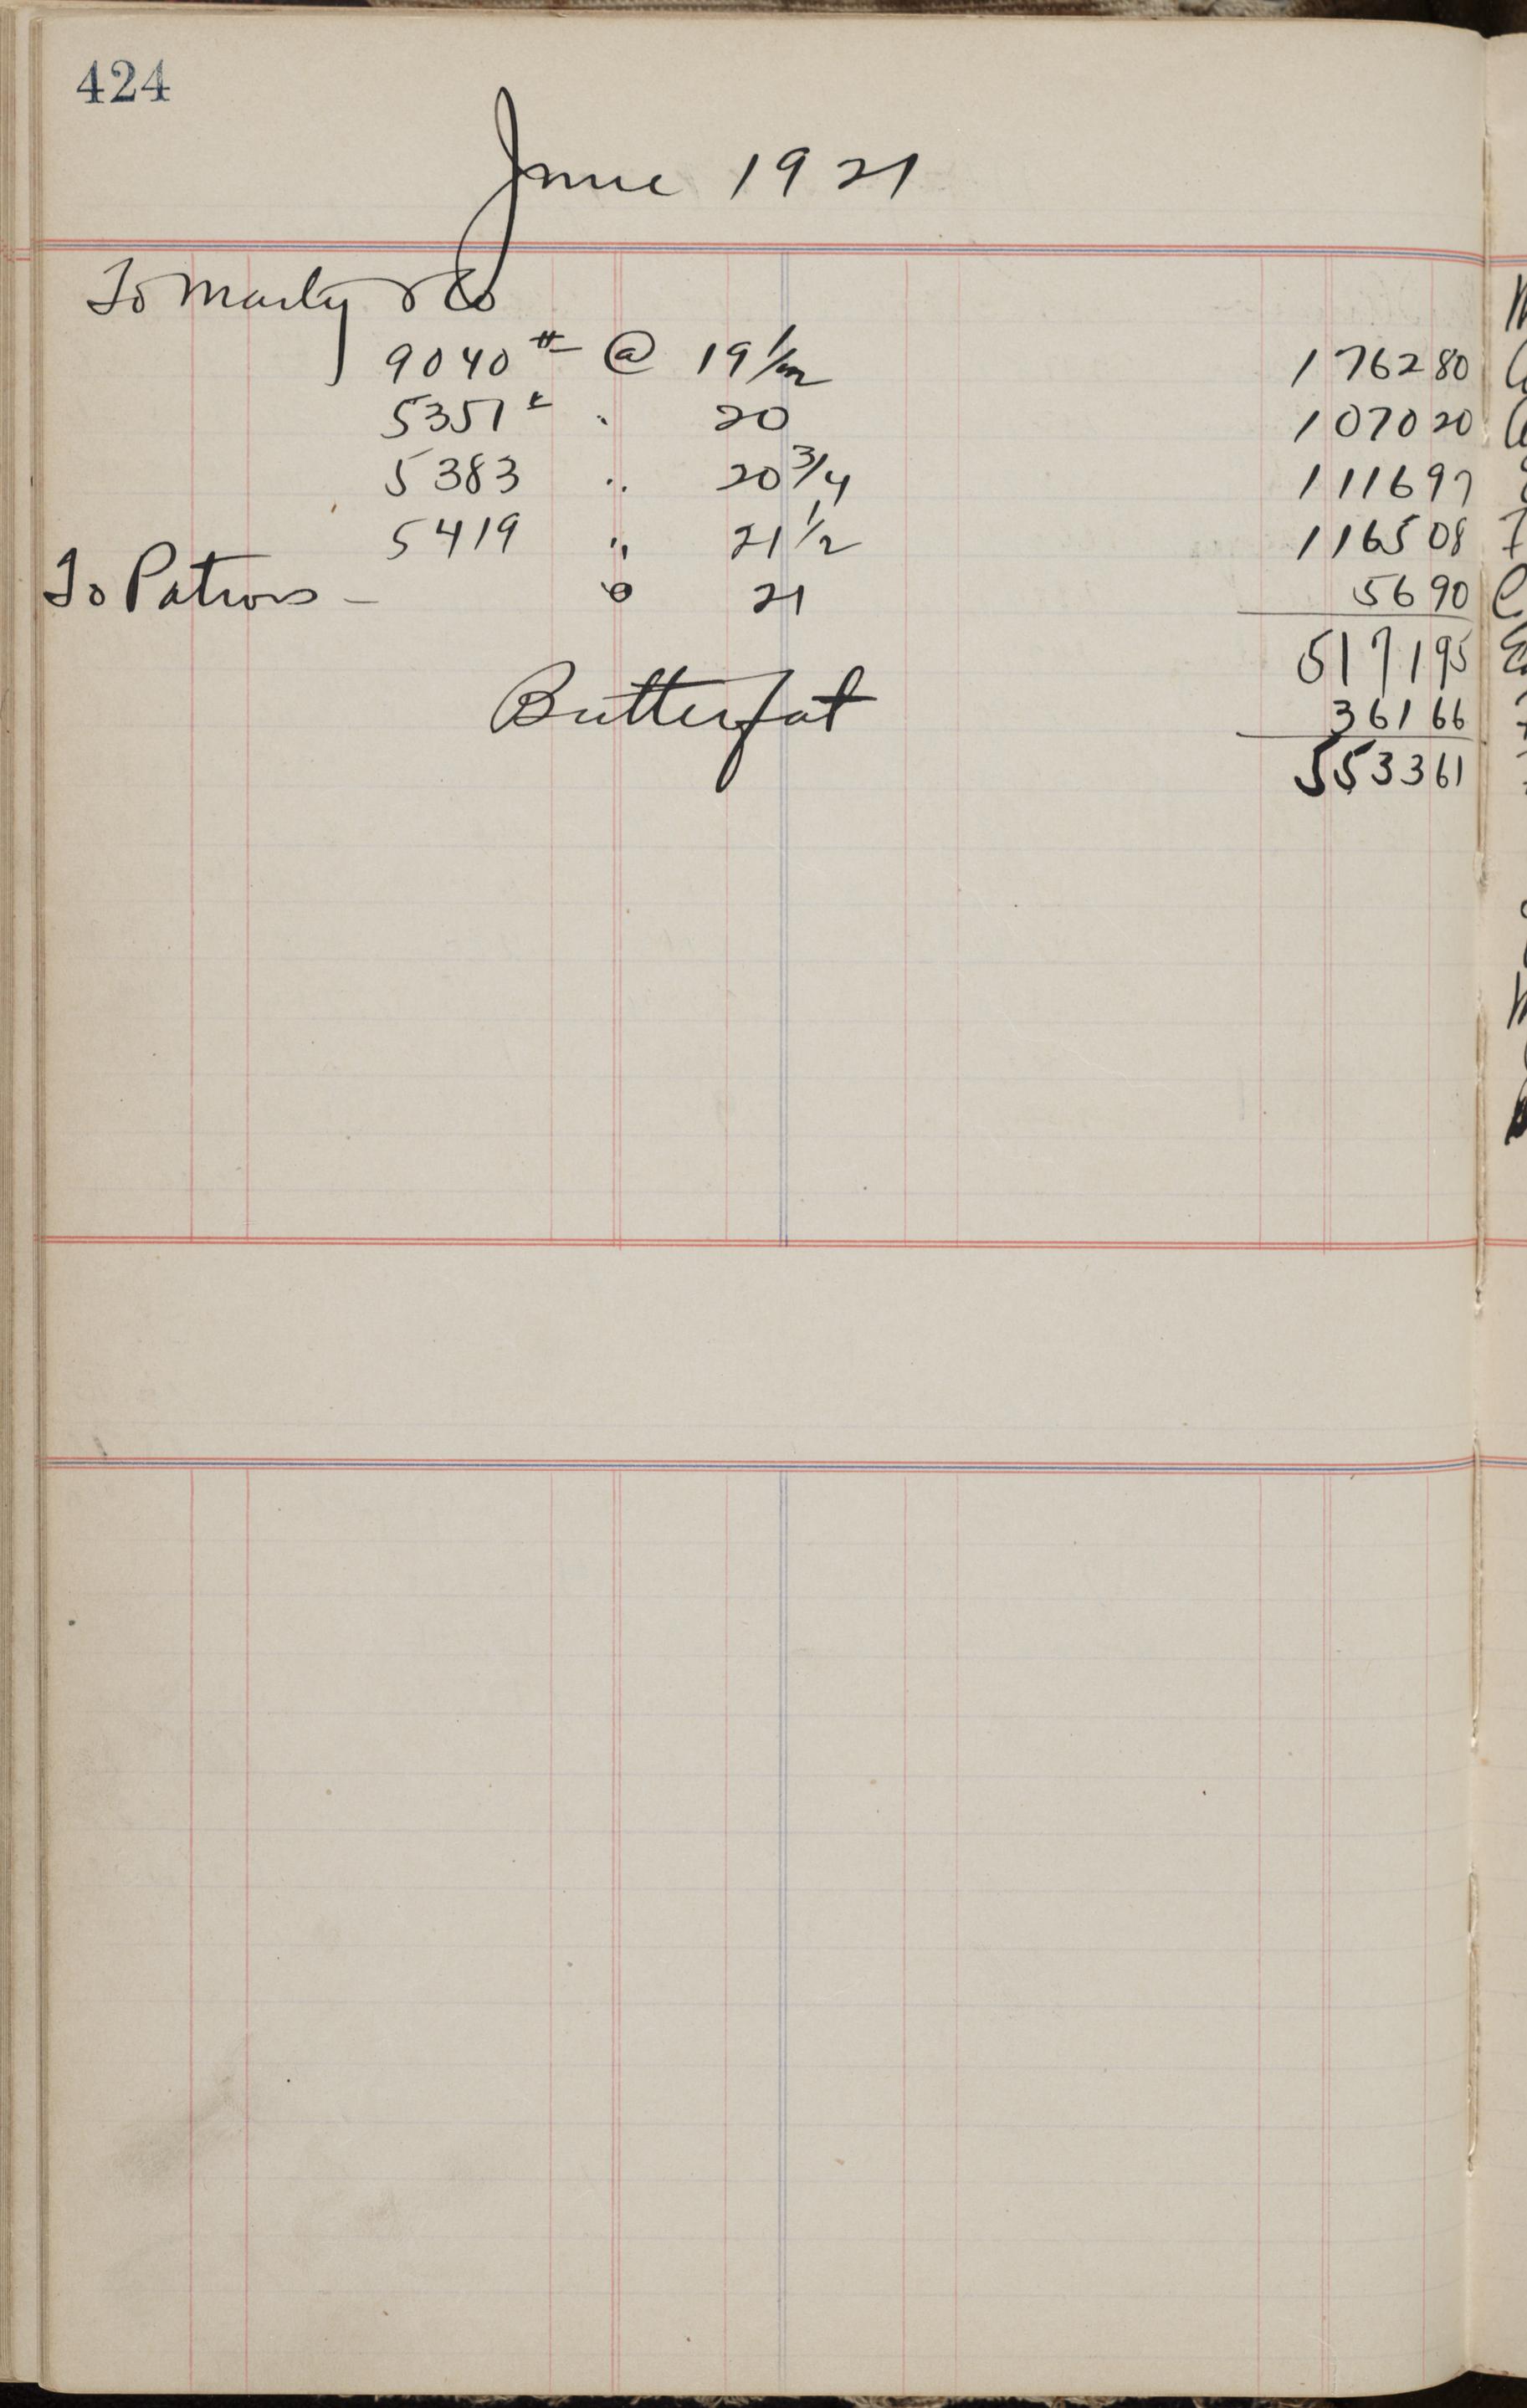 424
June 1921
To Marty & Co
9040 # @ 19 1/2 176280
5351 # " 20 107020
5383 " 20 3/4 111697
5419 " 21 1/2 116508
To Patrons - @ 21 5690
517195
Butterfat 36166
553361